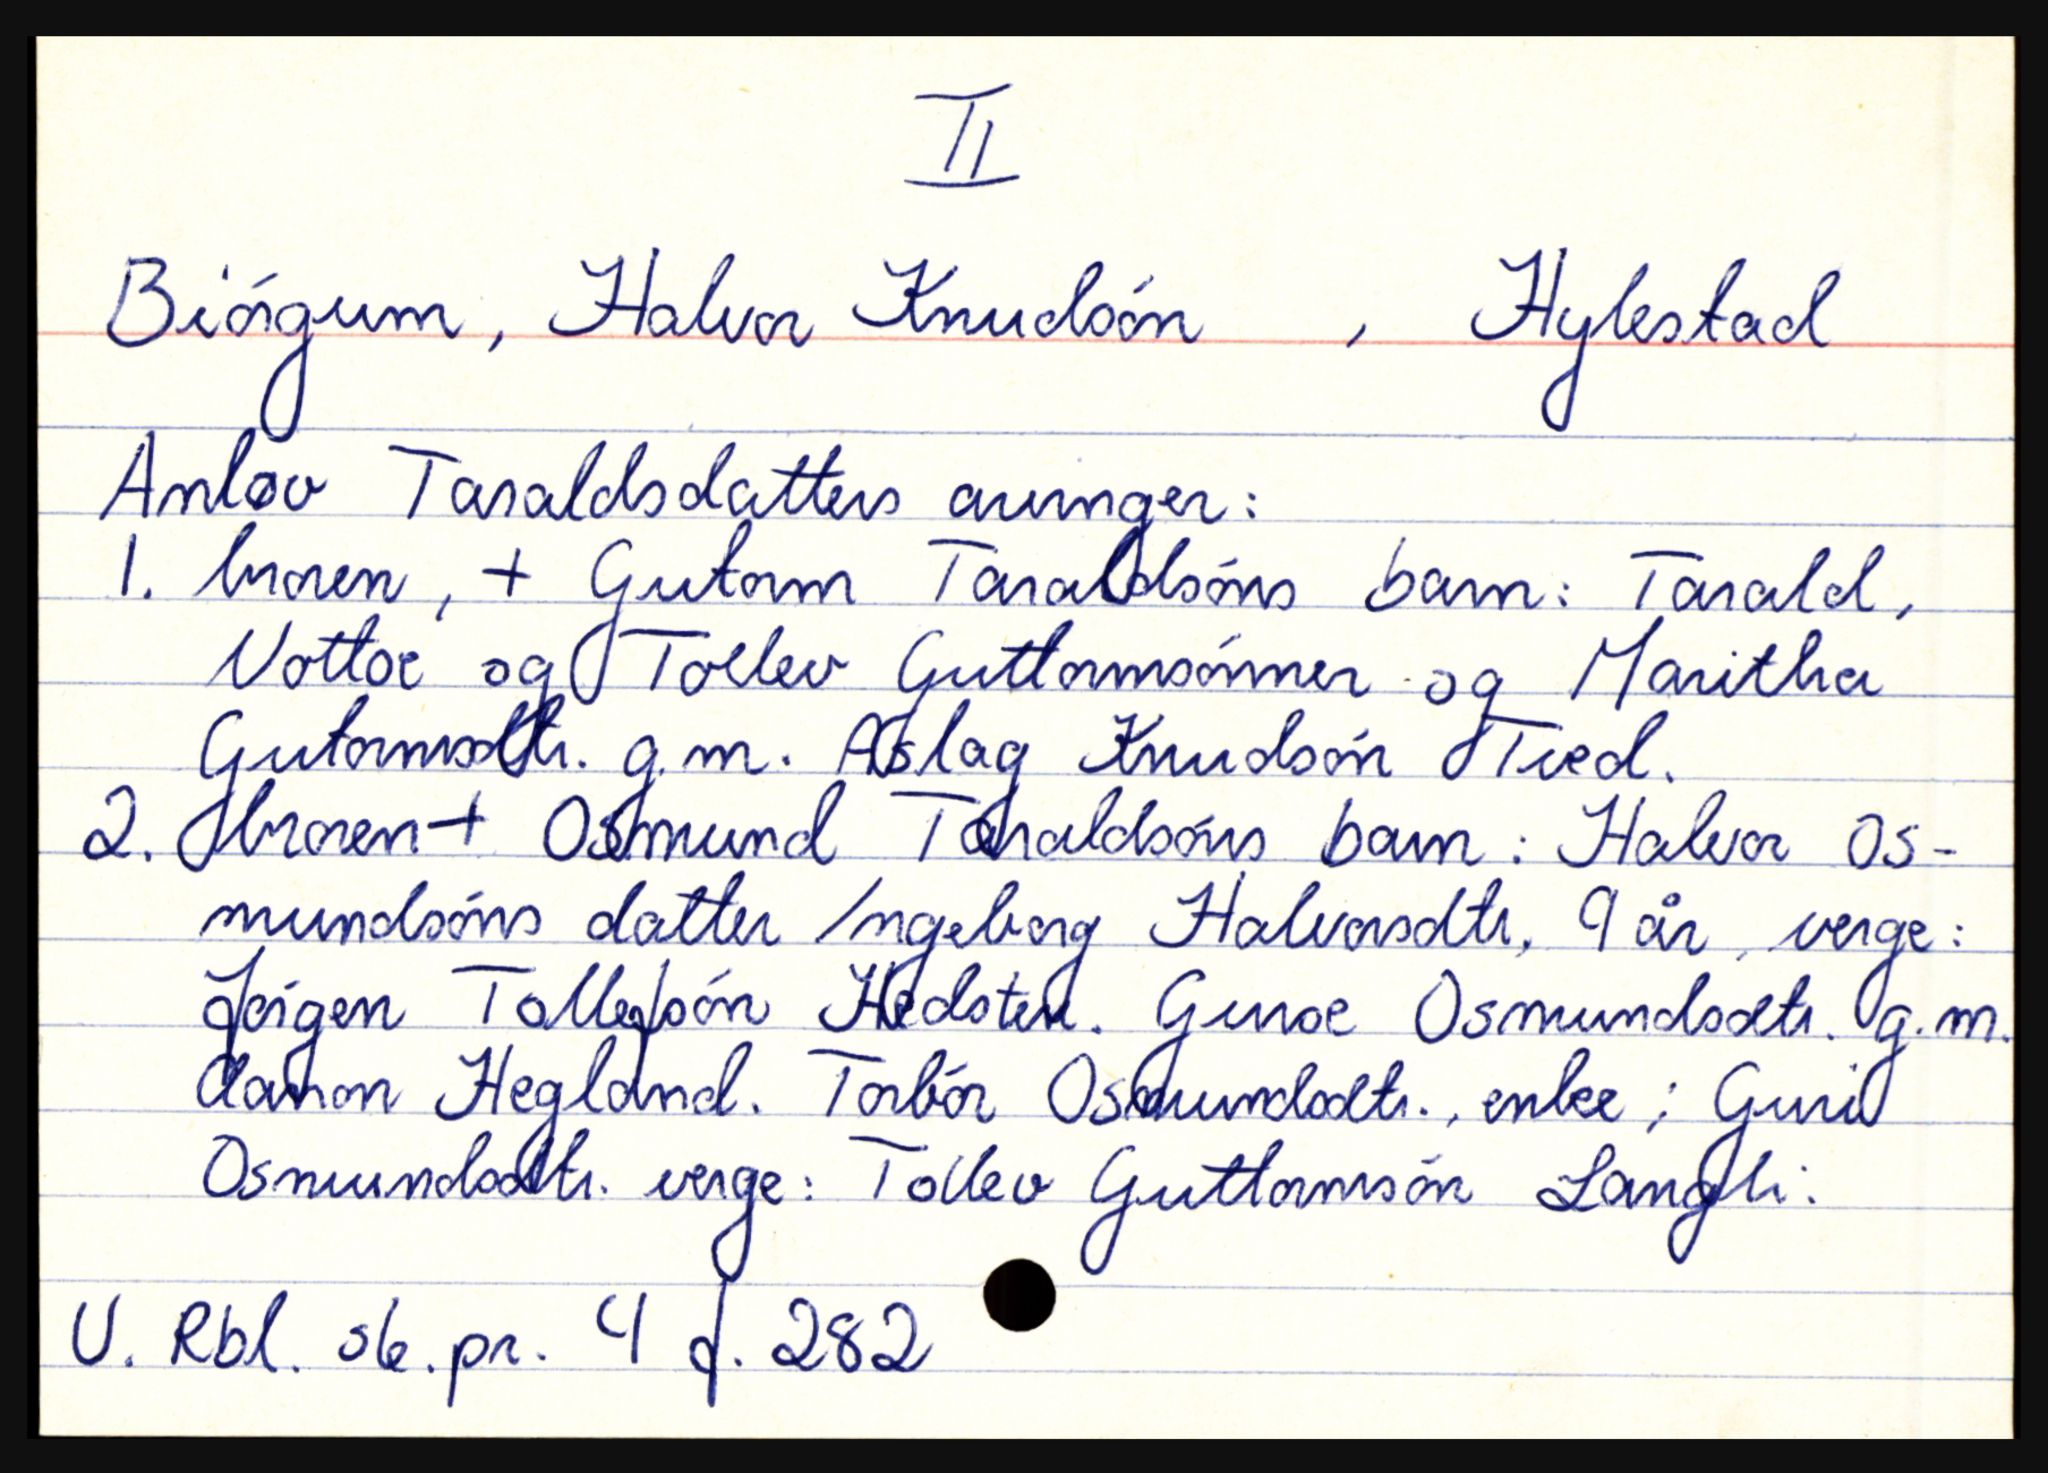 II
Biórgum, Halvor Knudsón , Hylestad
Anløv Taraldsdatters arvinger:
1. broren, + Gutorm Taraldsóns barn: Tarald,
Vottoe og Tollev Guttormsónner og Maritha
Gutormsdtr. g.m. Aslag Knudsón Tved.
2. broren + Osmund Taraldsóns barn: Halvor Os-
mundsóns datter Ingeborg Halvorsdtr. 9 år, verge:
Jórgen Tollefsón Hedsten. Guroe Osmundsdtr. g.m.
Aanon Hegland. Torbór Osmundsdtr., enke; Guri
Osmundsdtr. verge: Tollev Guttormsón Langli.
U. Rbl. sk. pr. 4 f. 282